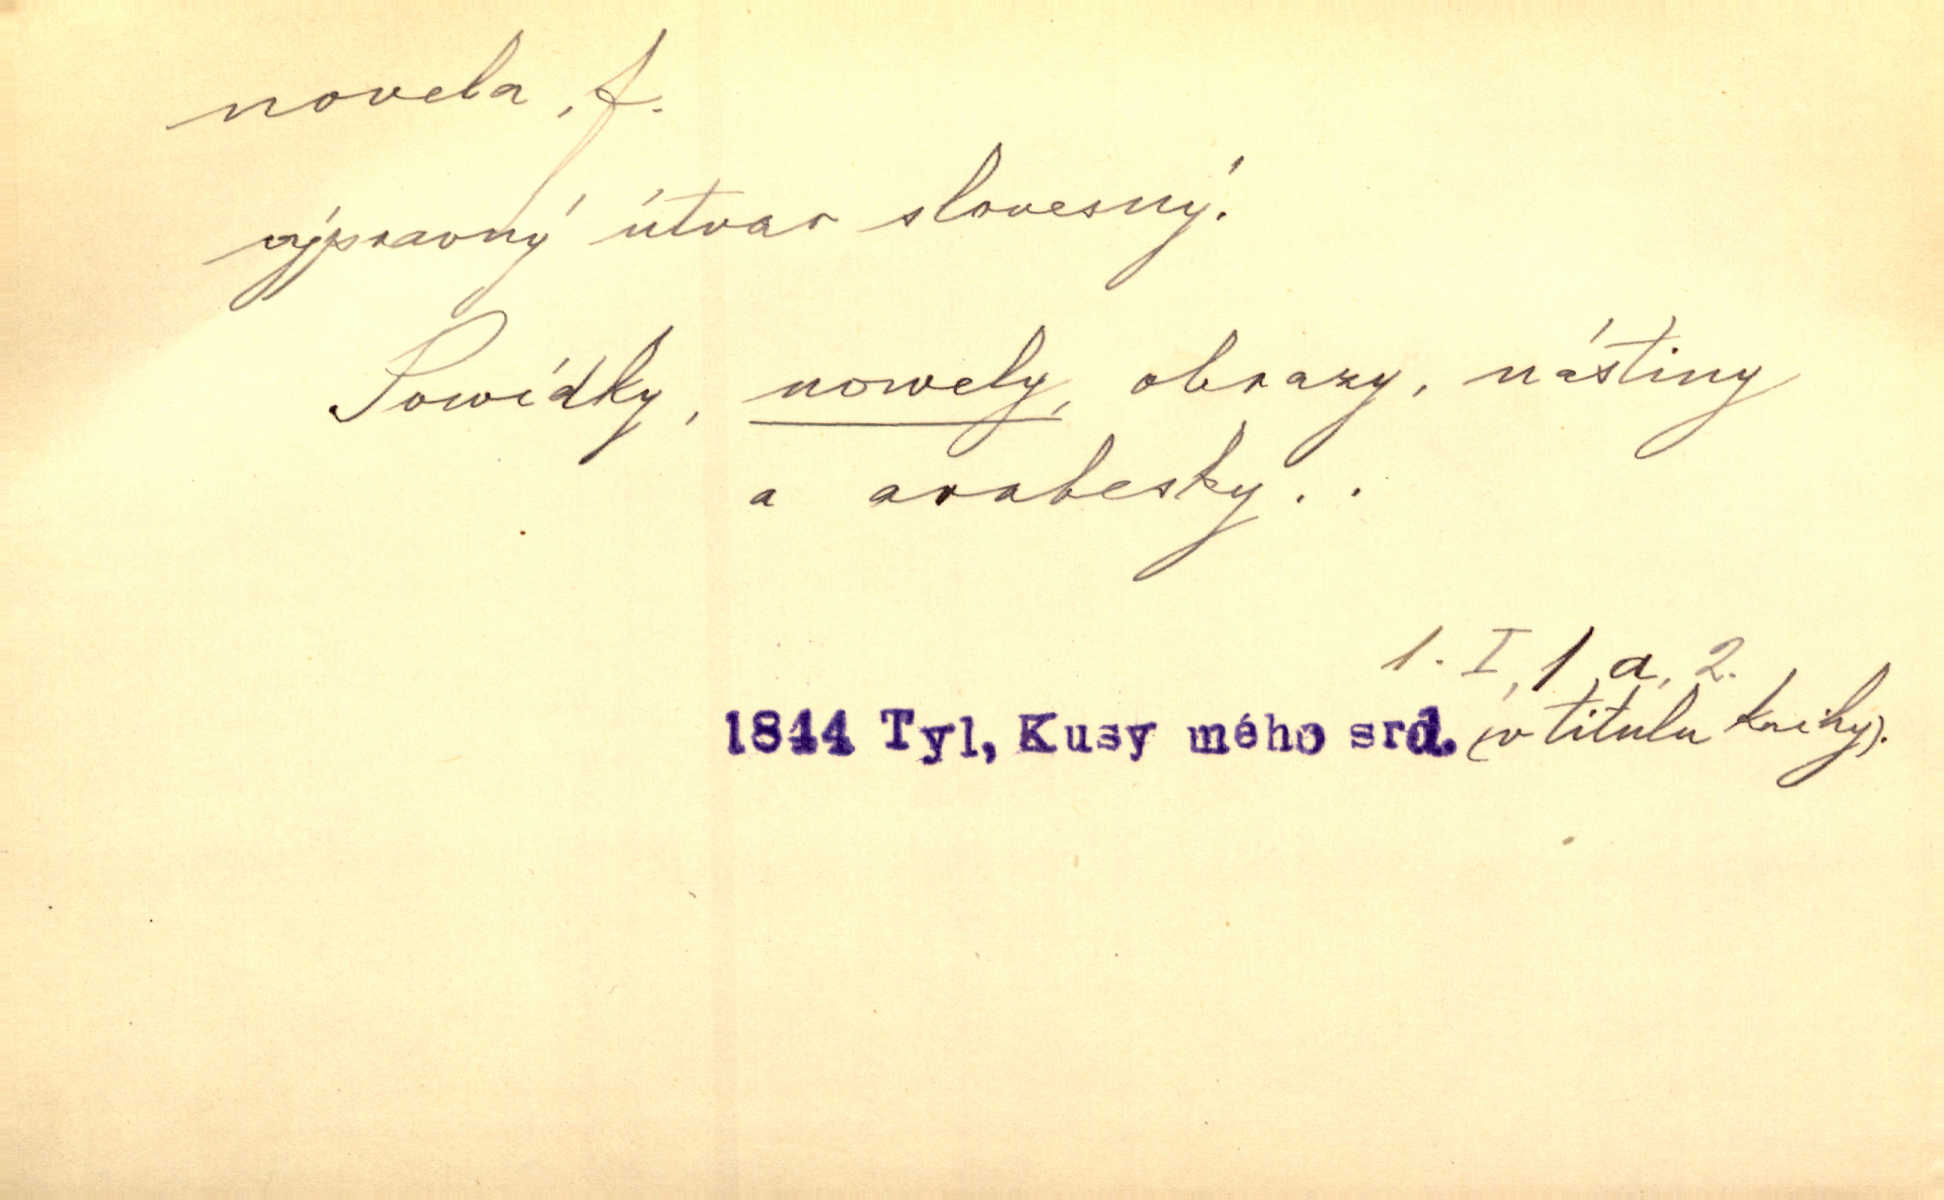 novela, f.
výpravný útvar slovesný.
Powídky, nowely, obrazy, nástiny
a arabesky..
1. I, 1 a, 2.
1844 Tyl, Kusy mého srd. (v titulu knihy).